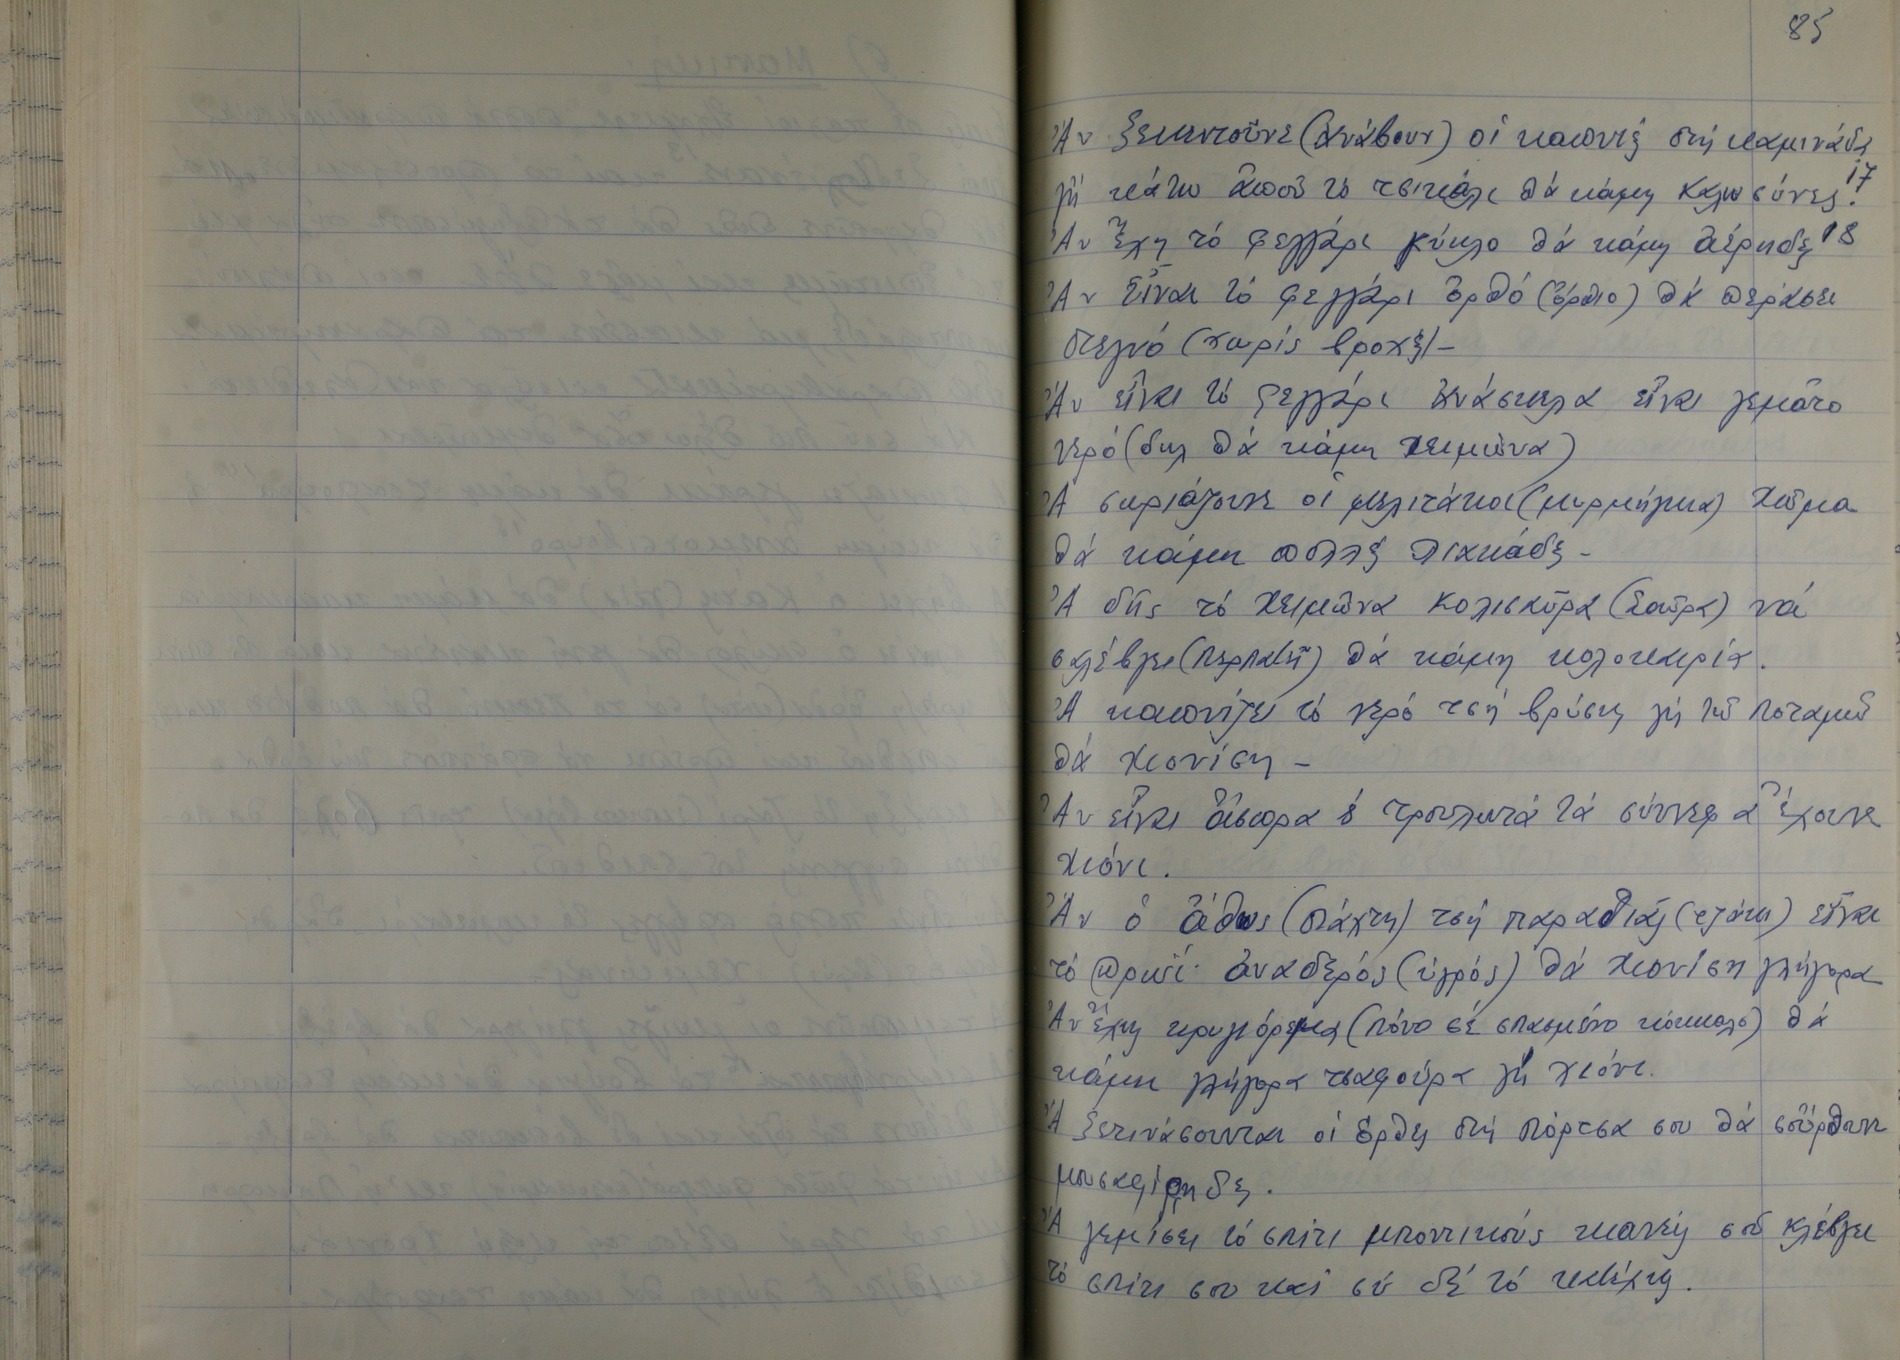 85
Ἄν ξεκεντοῦνε (ἀνάβουν) οἱ καπνιές στή καμινάδα
γή κάτω ἀπού τό τσικάλι θά κάμη καλωσύνες.17
Ἄν ἔχη τό φεγγάρι κύκλο θά κάμη ἀέρηδες18
Ἄν εἶναι τό φεγγάρι ὀρθό (ὄρθιο) θά περάσει
στεγνό (χωρίς βροχές)-
Ἄν εἶναι τό φεγγάρι ἀνάσκελα εἶναι γεμᾶτο
νερό (δηλ θά κάμη χειμῶνα)
Ἄ σκριάζουνε οἱ μελιτάκοι (μυρμήγκια) χῶμα
θά κάμη πολλές λιχνάδες -
Ἄ δῆς τό χειμῶνα κολισαῦρα (σαῦρα) νά
σαλέβγει (περπατεῖ) θά κάμη καλοκαιρία.
Ἄ καπνίζει τό νερό τσή βρύσης γή τοῦ ποταμοῦ
θά χιονίση -
Ἄν εἶναι ἄσπρα ὁ τρουλωτά τά σύννεφα ἔχουνε
χιόνι.
Ἄν ὁ ἄθος (στάχτη) τσή παραθιᾶς (τζάκι) εἶναι
τό πρωΐ ἀναδερός (ὑγρός) θά χιονίση γλήγορα
Ἄν ἔχης (πόνο σέ σπασμένο κόκκαλο) θά
κάμη γλήγορα τσαφούρα γή χιόνι.
Ἄ ξετινάσουνται οἱ ὄρθες στή πόρτσα σου θά σοὔρθουν
μουσαφίρηδες.
Ἄ γεμίσει τό σπίτι μποντικούς κανείς σοῦ κλέβγει
τό σπίτι σου καί σύ δέ τό κατέχης.